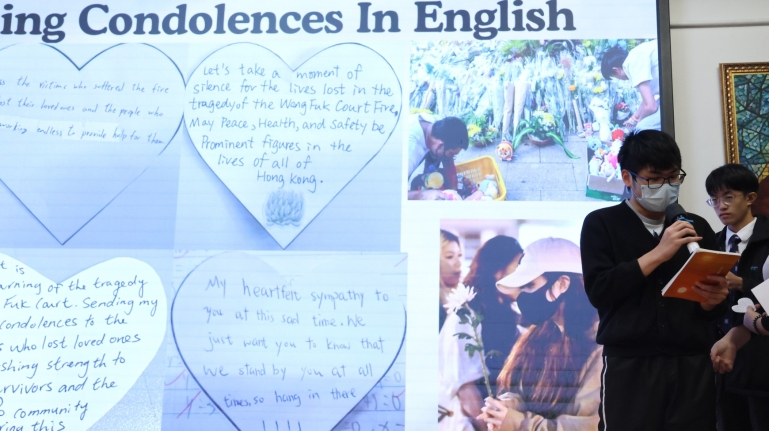 ing Condolences In English
the victims who suffered the fire
and the people who
endless to provide help for them
Let's take a moment of
silence for the lives lost in the
tragedy of the Wang Fuk Court Fire,
May Peace, Health, and Safety be
Prominent figures in the
lives of all of
Hong Kong.
t is
urning of the tragedy
Fuk Court. Sending my
condolences to the
s who lost loved ones
shing strength to
rvivors and the
o community
ring this
My heartfelt sympathy to
you at this sad time. We
just want you to know that
we stand by you at all
times, so hang in there
!!!!